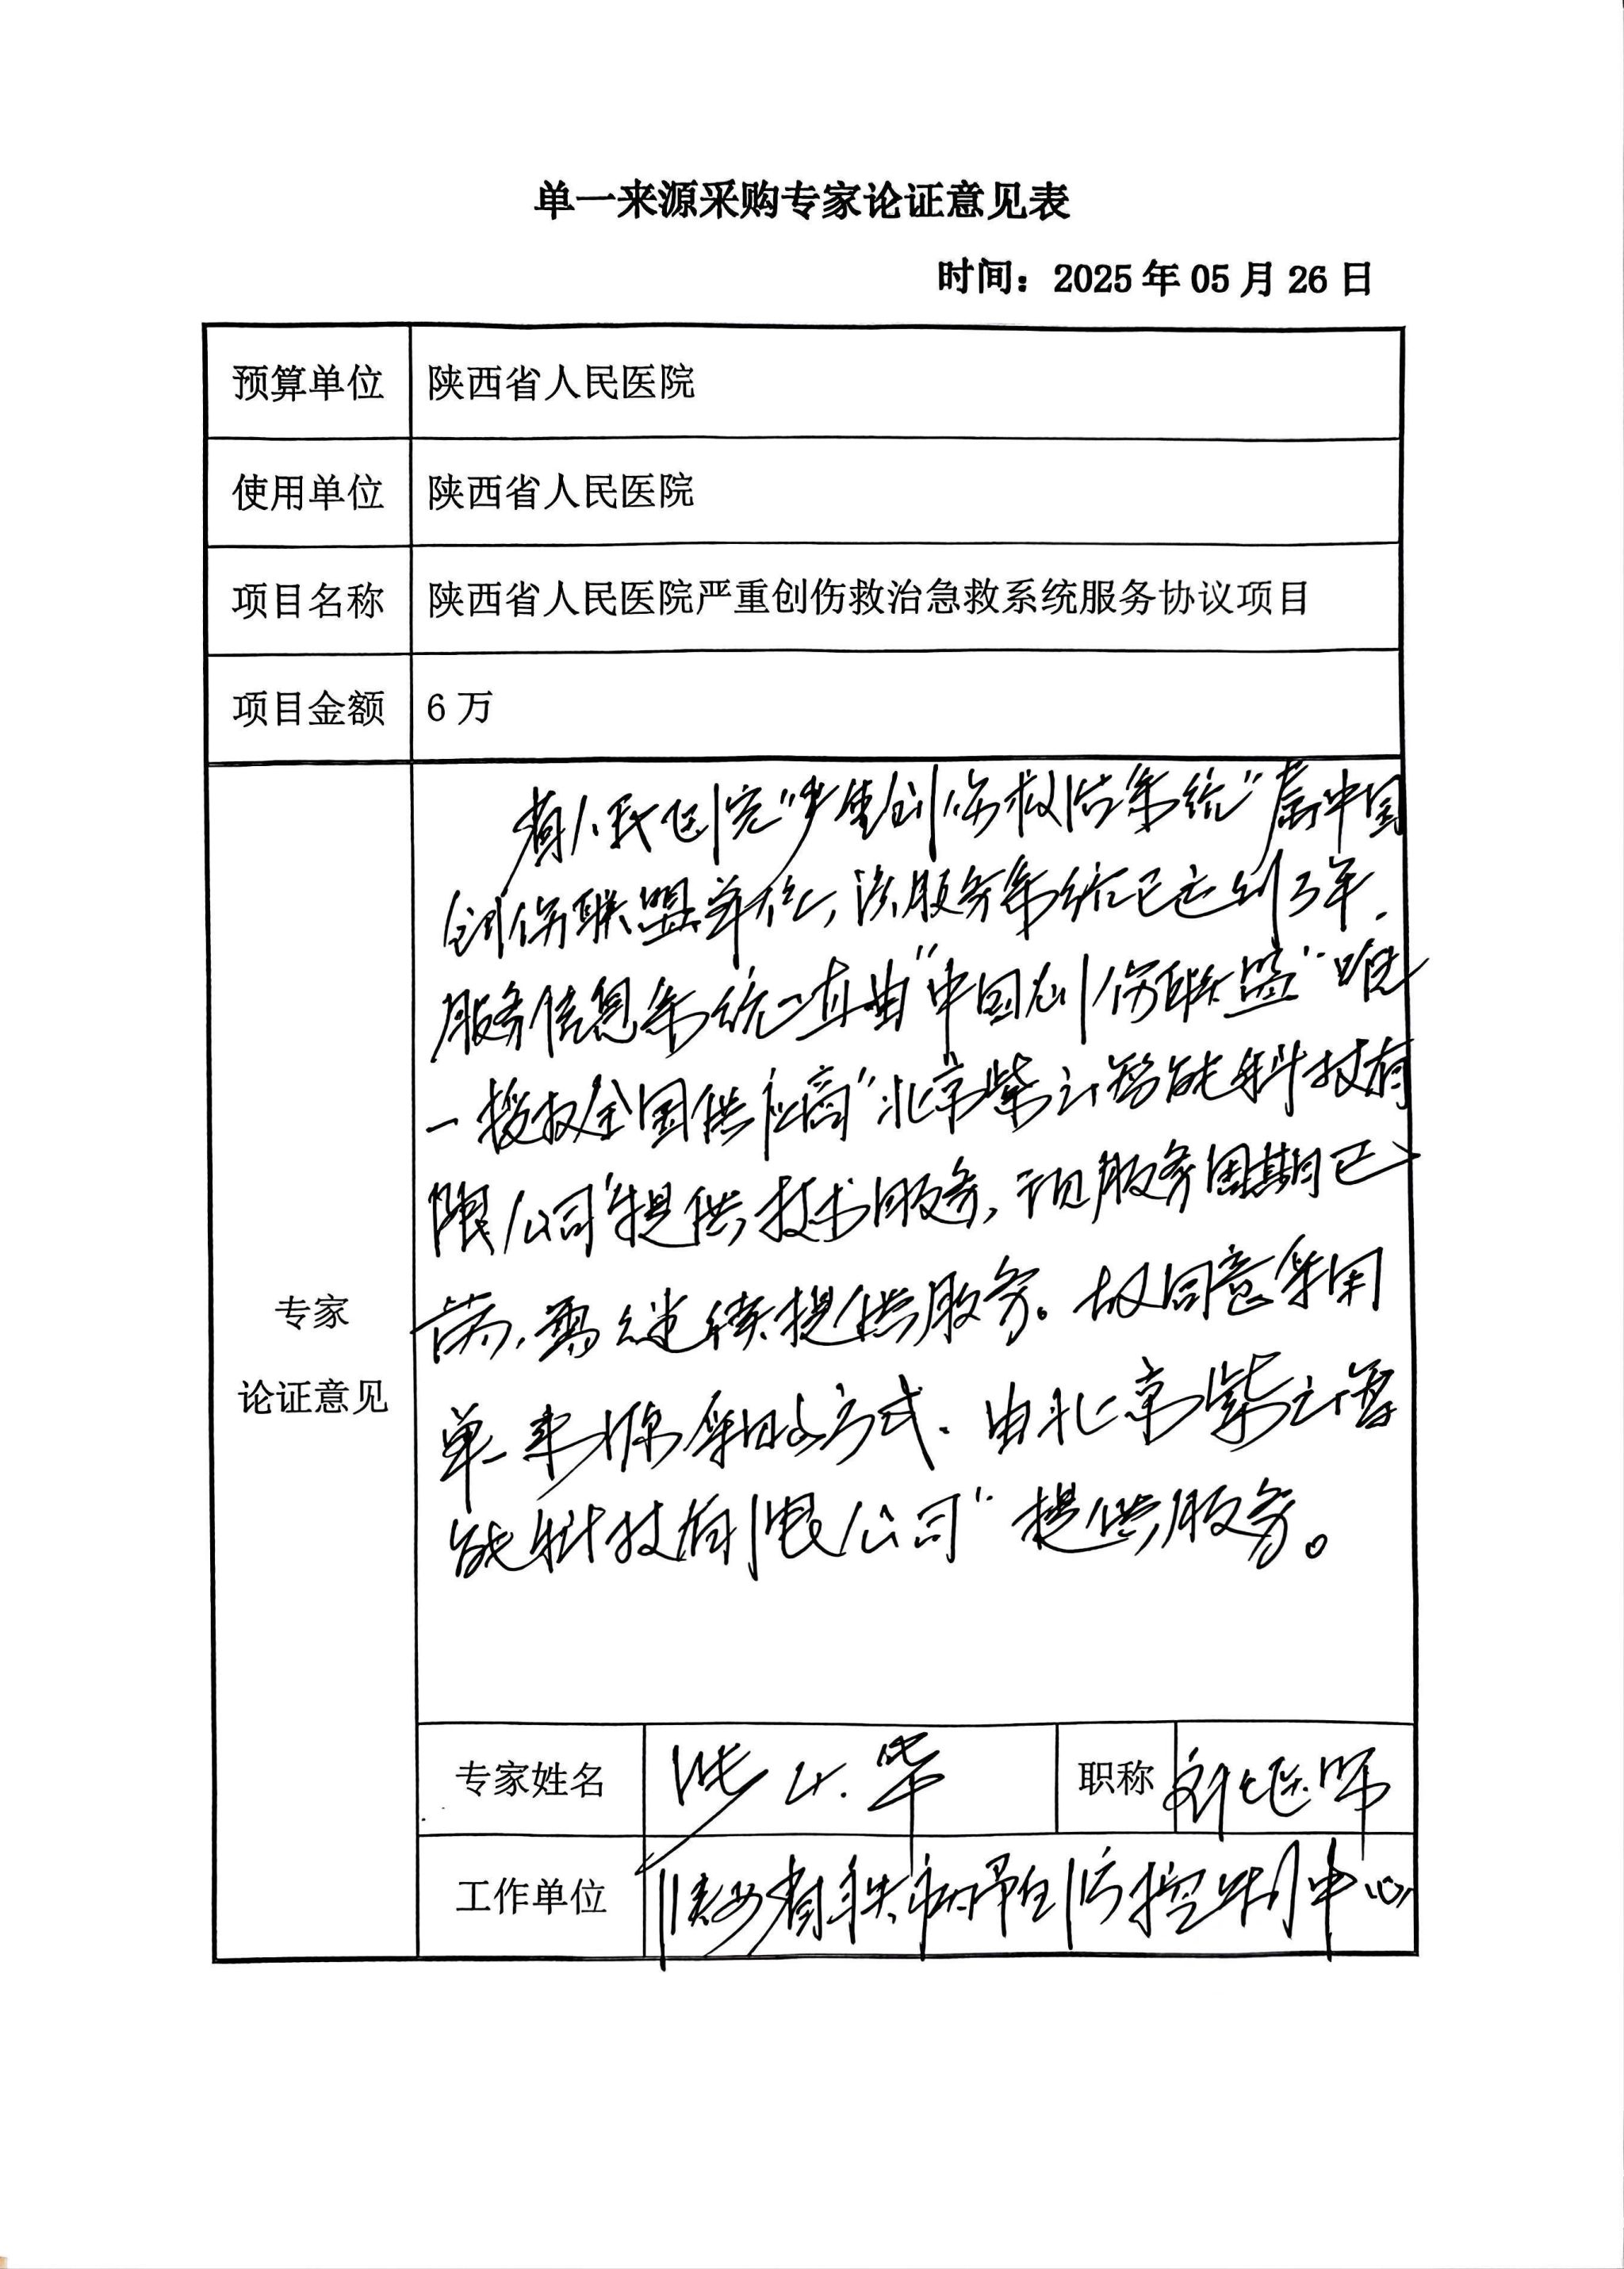 单一来源采购专家论证意见表
时间：2025年05月26日
预算单位 陕西省人民医院
使用单位 陕西省人民医院
项目名称 陕西省人民医院严重创伤救治急救系统服务协议项目
项目金额 6万
专家
论证意见
省人民医院“严重创伤救治系统”属中国
创伤联盟单位，该服务系统已达到3年.
服务信息系统一直由“中国创伤联盟”唯
一授权全国供应商“北京紫云智能科技有
限公司”提供技术服务，现服务周期已
满，需继续提供服务。故同意采用
单一来源采购方式. 由北京紫云智
能科技有限公司” 提供服务。
专家姓名 华 职称 医师
工作单位 陕西省疾病预防控制中心